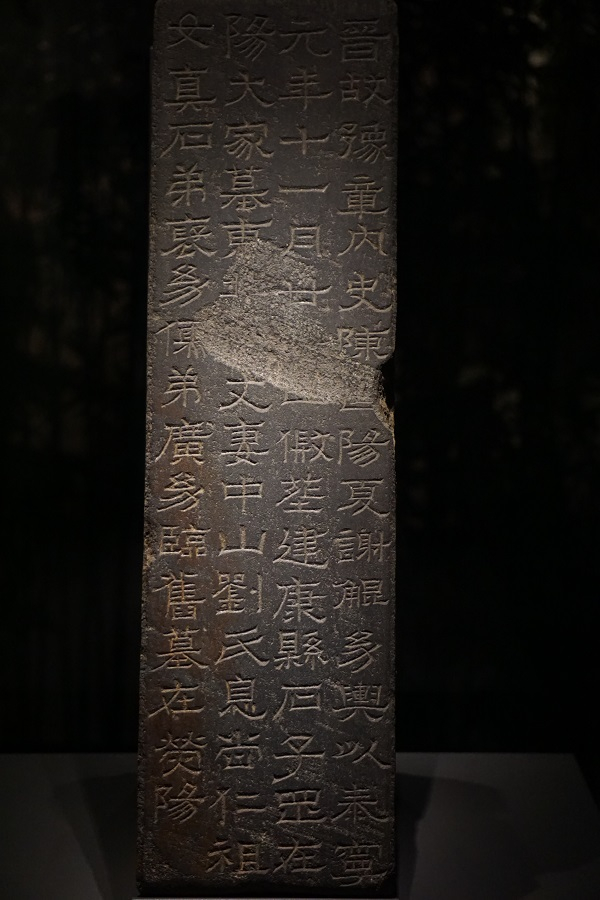 晉故豫章內史陳國陽夏謝鯤幼輿以泰寧
元年十一月廿亡假葬建康縣石子罡在
陽大家墓東北丈妻中山劉氏息尚仁祖
女真石弟褒幼儒弟廣幼臨舊墓在熒陽